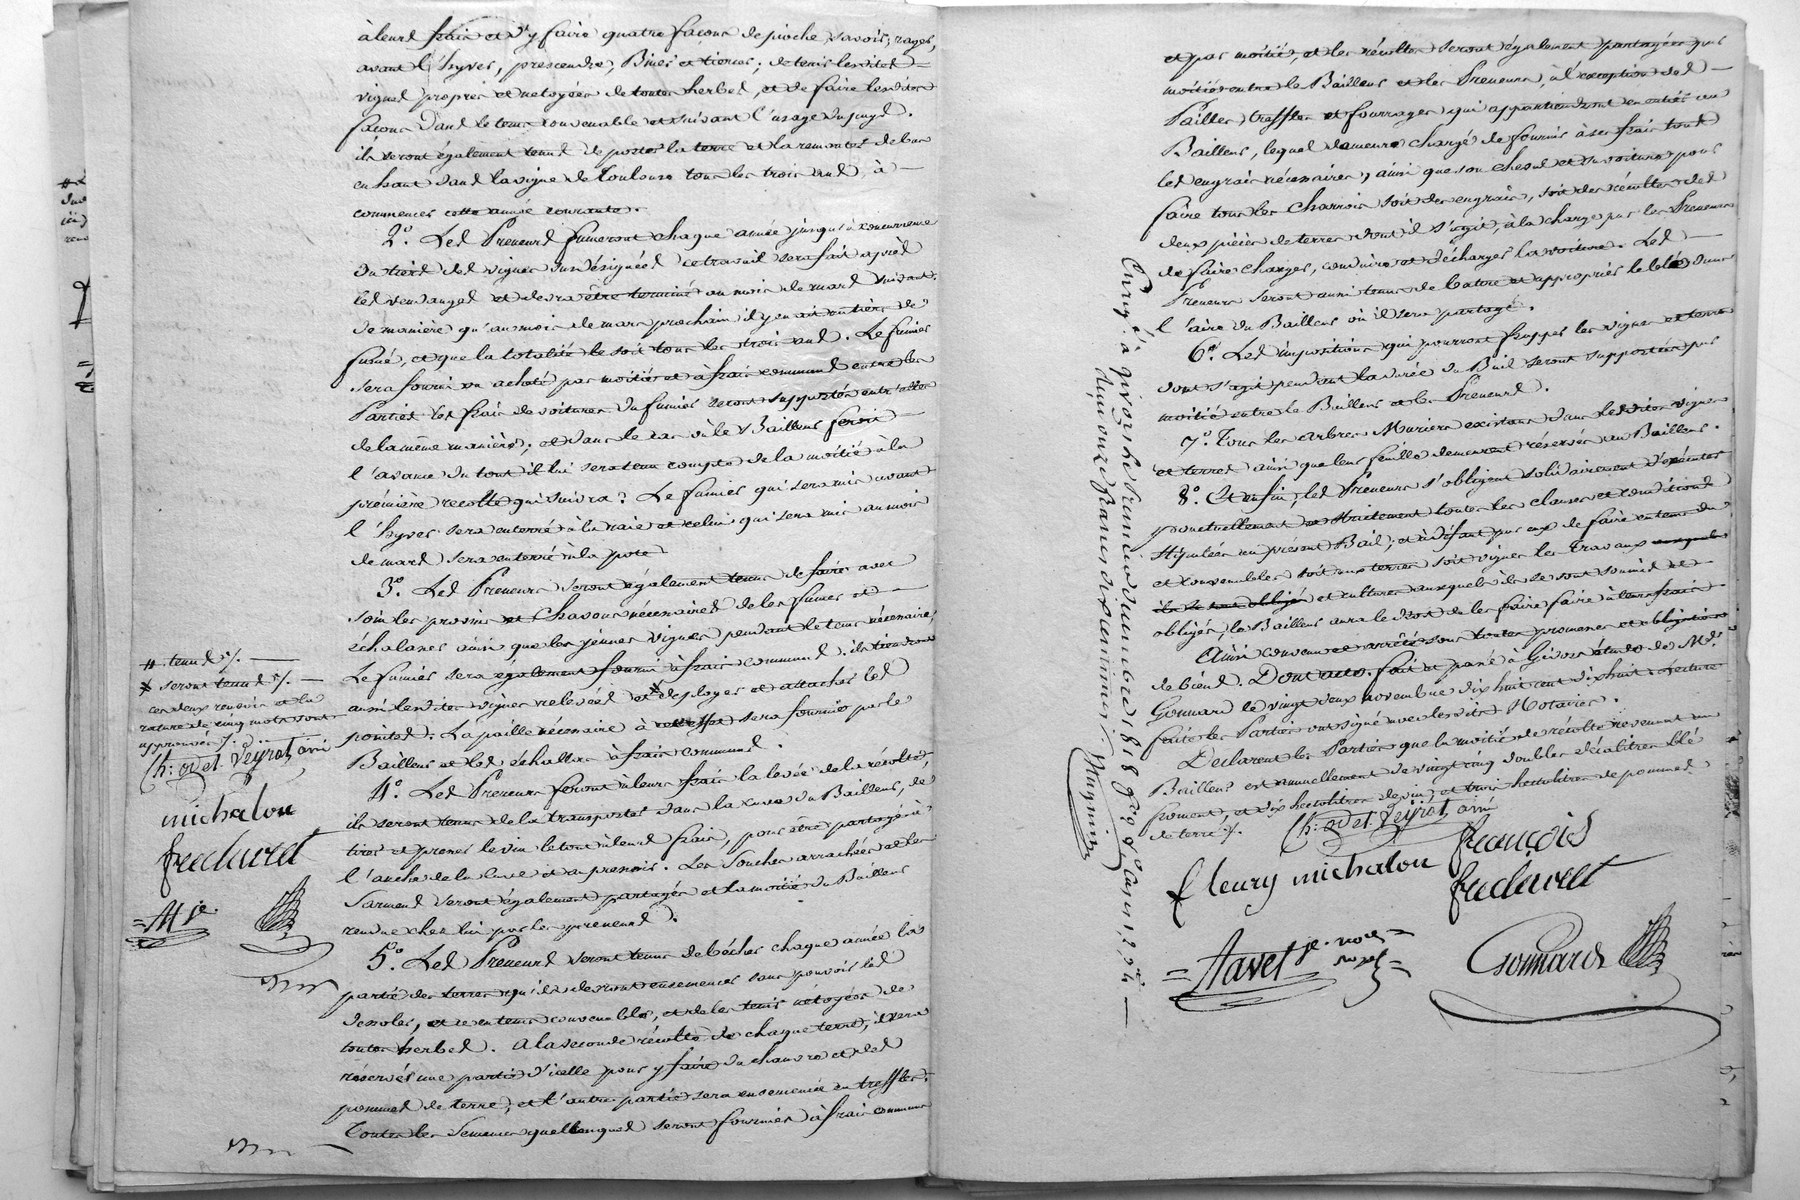 à leurs frais et d'y faire quatre façons de pioche, savoir; rayer,
avant l'hyver, prescendre, Biner et tiercer; de tenir lesdites
vignes propres et netoyées de toutes herbes, et de faire lesdites
façons dans le tems convenable et suivant l'usage du pays.
ils seront également tenus de porter la terre et la remonter de bas
en haut dans la vigne de Toulouse tous les trois ans, à
commencer cette année courante.
2.º Les Preneurs fumeront chaque année jusqu'à concurrence
du tiers des vignes susdésignées ce travail sera fait après
les vendanges et devra être terminé au mois de mars suivant.
de manière qu'au mois de mars prochain il y en ait un tiers de
fumé, et que la totalité le soit tous les trois ans. Le fumier
sera fourni ou acheté par moitiés et à frais communs entre les
Parties les frais de voitures du fumier seront supportés entr'elles
de la même manière; et dans le cas où le Bailleur feroit
l'avance du tout il lui sera tenu compte de la moitié à la
première récolte qui suivra. Le fumier qui sera mis avant
l'hyver sera enterré à la raie et celui qui sera mis au mois
de mars sera enterré à la pote.
3.º Les Preneurs seront également tenus de faire avec
soin les provins et Chavons nécessaires de les fumer et
échalasser ainsi que les jeunes vignes pendant le tems nécessaire,
Le fumier sera également fourni à frais communs. ils tiendront
aussi lesdites vignes relevées et * déployer et attacher les
pointes. La paille nécessaire à cet effet sera fournie par le
Bailleur et les échallas à frais communs.
4.º Les Preneurs feront à leurs frais la levée de la récolte,
ils seront tenus de la transporter dans la cuve du Bailleur, de
tirer et presser le vin le tout à leurs frais, pour être partagé à
l'anche de la Cuve et au pressoir. Les Souches arrachées et les
Sarmens seront également partagés et la moitié du Bailleur
rendue chez lui par les preneurs.
5.º Les Preneurs seront tenus de bêcher chaque année la
partie des terres qu'ils devront ensemencer sans pouvoir les
dessoler, et ce en tems convenable, et de les tenir netoyées de
toutes herbes. A la seconde récolte de chaque terre, il sera
réservés une partie d'icelle pour y faire du chanvre et des
pommes de terre, et l'autre partie sera ensemencée en treffles.
Toutes les Semences quelconques seront fournies à frais communs
# tenus ./.
* seront tenus ./.
ces deux renvois et la
rature de cinq mots sont
approuvés ./.
Ch: odet Veyrat, ainé
michalon
freduret
et par moitié, et les récoltes seront également partagées par
moitiés entre le Bailleur et les Preneurs, à l'exception des
Pailles, treffles et fourrages qui appartiendront en entier au
Bailleur, lequel demeure chargé de fournir à ses frais tous
les engrais nécessaires, ainsi que son cheval et sa voiture pour
faire tous les Charrois soit des engrais, soit des récoltes des
deux pièces de terres dont il s'agit, à la charge par les Preneurs
de faire charger, conduire et décharger la voiture. Les
Preneurs seront aussi tenus de battre et approprier le blé dans
l'aire du Bailleur où il sera partagé.
6.º Les impositions qui pourront frapper les vignes et terres
dont s'agit pendant la durée du Bail seront supportées par
moitié entre le Bailleur et les Preneurs.
7.º Tous les arbres Muriers existans dans lesdites vignes
et terres ainsi que leur feuille demeurent réservés au Bailleur.
8.º Et enfin, les Preneurs s'obligent solidairement d'exécuter
ponctuellement et strictement toutes les clauses et conditions
stipulées au présent Bail; et à défaut par eux de faire en tems dû
et convenables soit aux terres soit vignes les travaux auxquels
ils se sont obligés et cultures auxquels ils se sont soumis et
obligés, le Bailleur aura le droit de les faire faire à leurs frais
Ainsi convenu et arrêté sous toutes promesses et obligations
de biens. Dont acte. fait et passé à Givors étude de M.e
Gonnard le vingt deux novembre dix huit cent dix huit. Lecture
faite les Parties ont signé avec lesdits Notaires.
Déclarent les Parties que la moitié de récolte revenant au
Bailleur est annuellement de vingt cinq doubles décalitres blé
froment, et dix hectolitres de vin, et trois hectolitres de pommes
de terre ./.
Ch: odet Veyrat, ainé
fleury michalon françois
freduret
Favet j.e not.re
Gonnard
Enreg.é à givors le trente novembre 1818 f.º
Reçu onze francs dix centimes